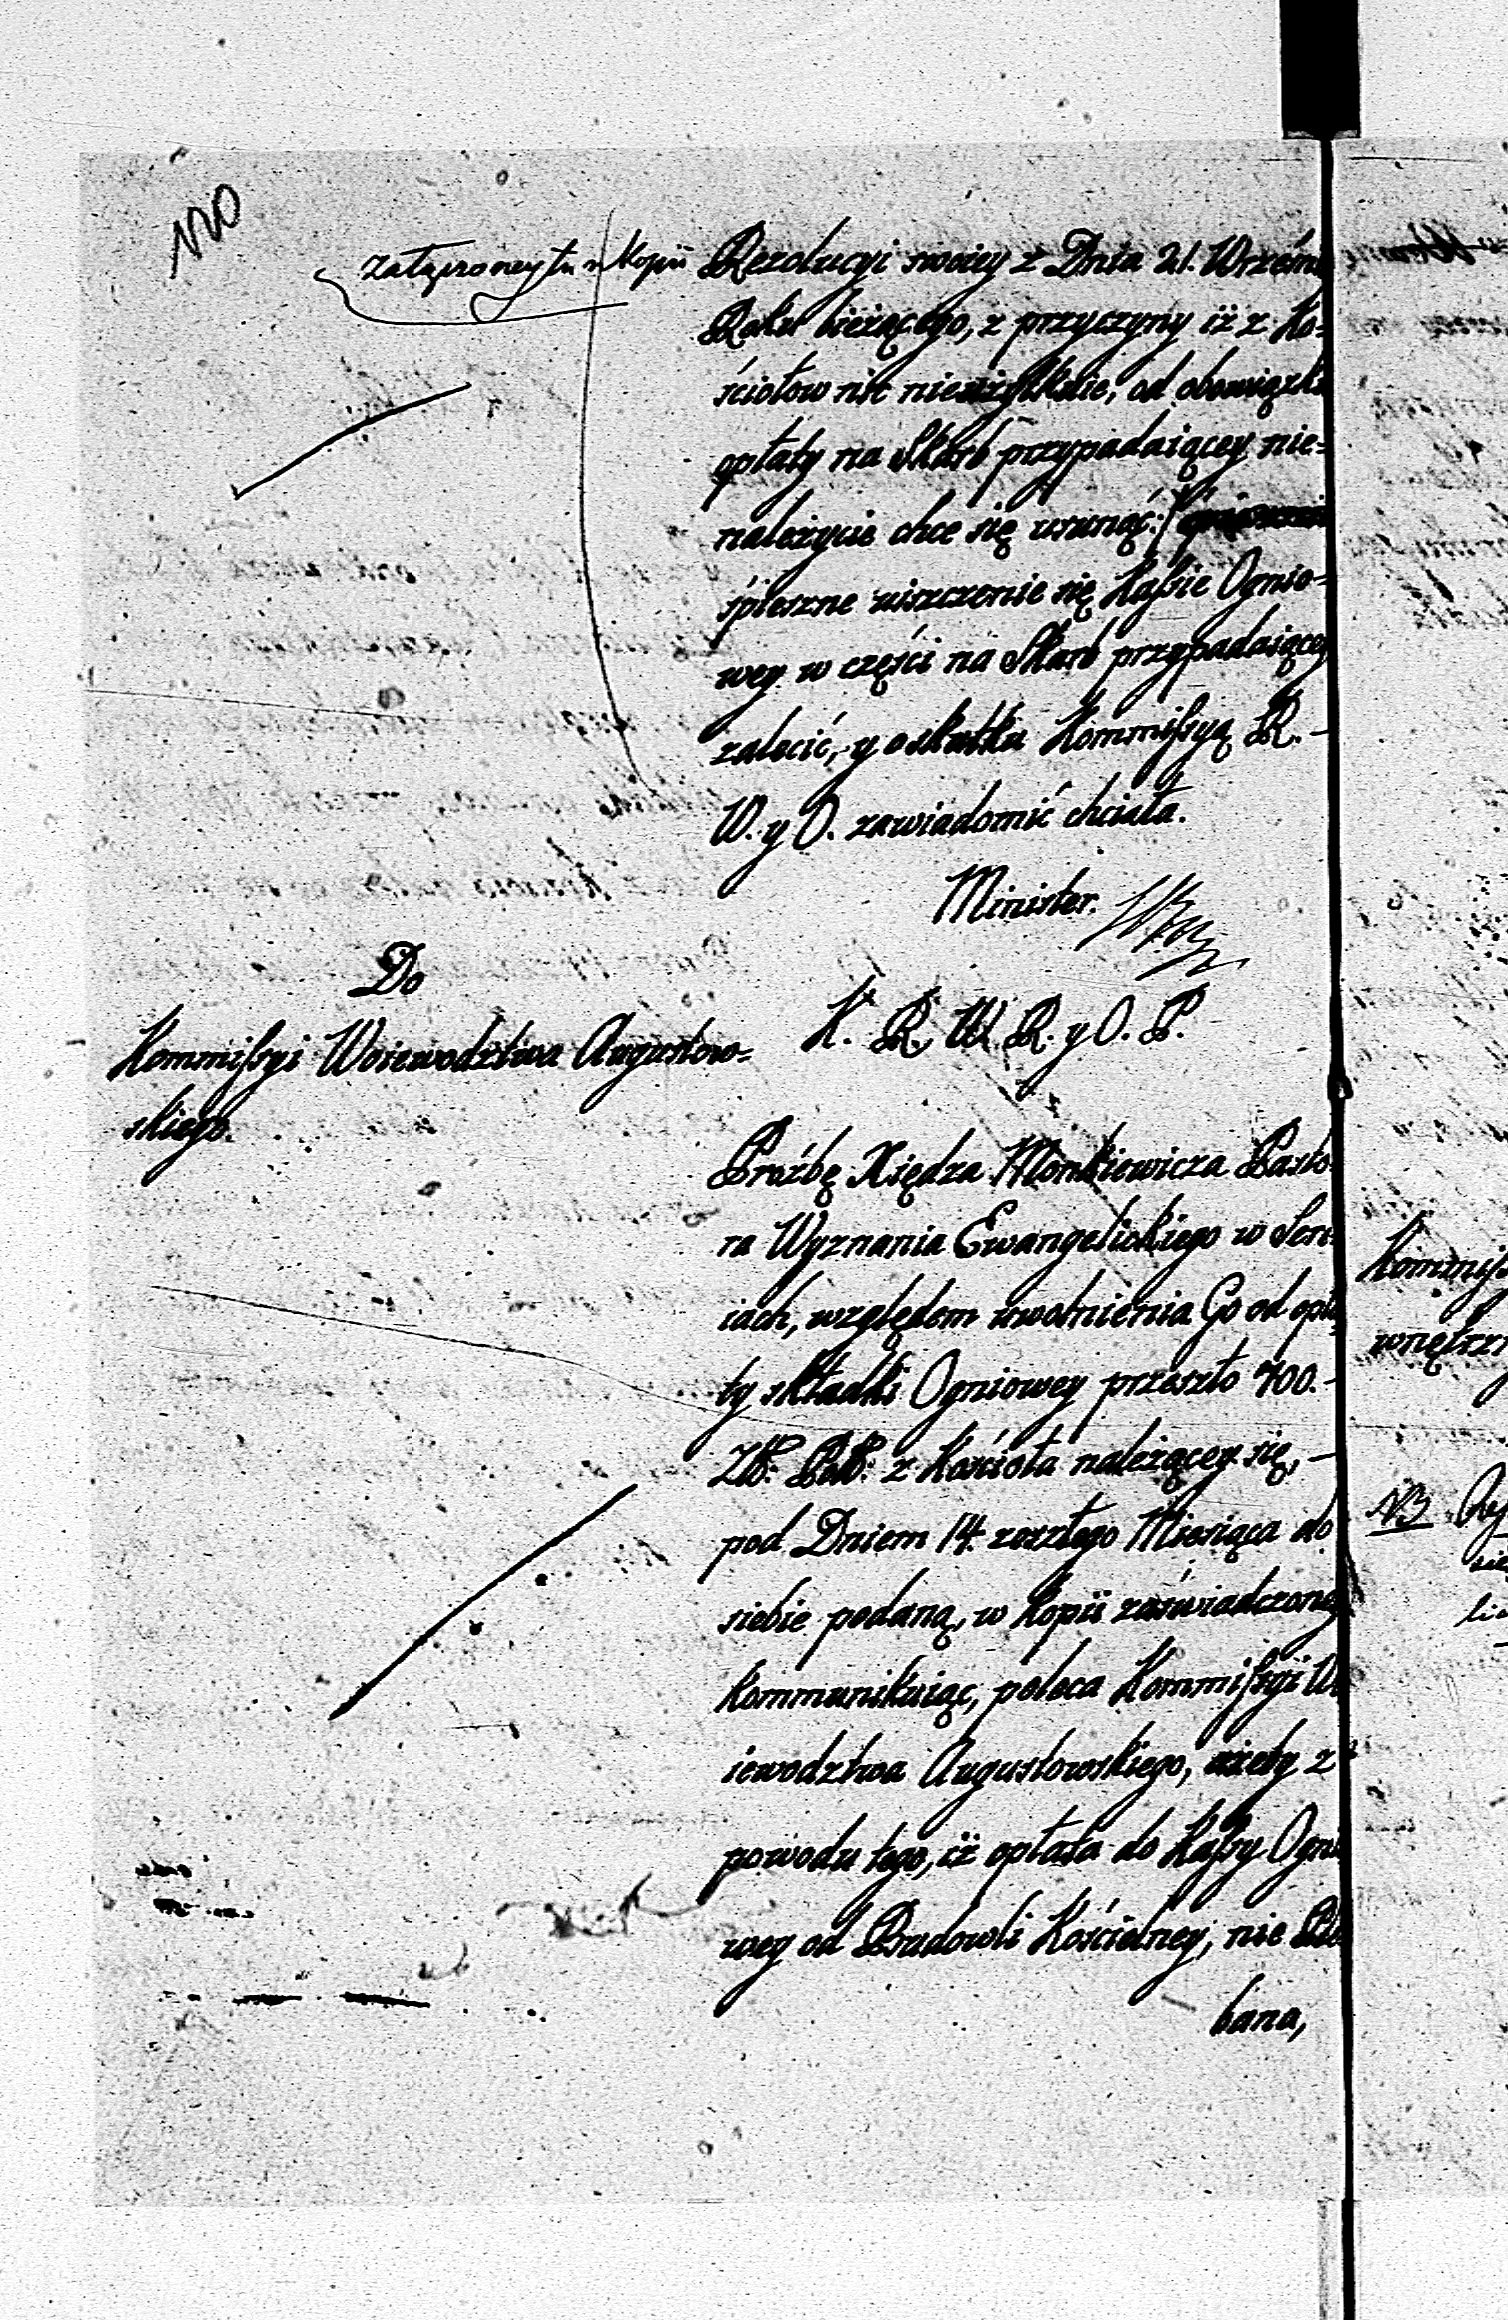 170
załączoney tu w Kopii
Rezolucyi swoiey z Dnia 21. Wrześni
Roku bieżącego, z przyczyny iż z Ko-
ściołow nic nieużytkuie, od obowiązku
opłaty na Skarb przypadaiącey nie-
należycie chce się usunąć:
śpieszne uiszczenie się Kaſsie Ognio-
wey w części na Skarb przypadaiącey
zalecić, y o skutku Kommiſsyą R.-
W. y O. zawiadomić chciała.
Minister.
Do
Kommiſsyi Woiewodztwa Augustow-
skiego.
K. R. W. R. y O. P.
Proźbę Xiędza Monkiewicza Pasto-
ra Wyznania Ewangelickiego w Sere-
iach, względem uwolnienia Go od opła-
ty składki Ogniowey przeszło 700.-
Zł: Pol: z Kościoła należącey się, -
pod Dniem 14. zeszłego Miesiąca do
siebie podaną, w kopii zaświadczoney
kommunikuiąc, poleca Kommiſsyi Wo
iewodztwa Augustowskiego, ażeby z
powodu tego, iż opłata do Kaſsy Ognio
wey od Budowli Kościelney, nie Ple
bana,
Kommiſs
wnętrzn
NB